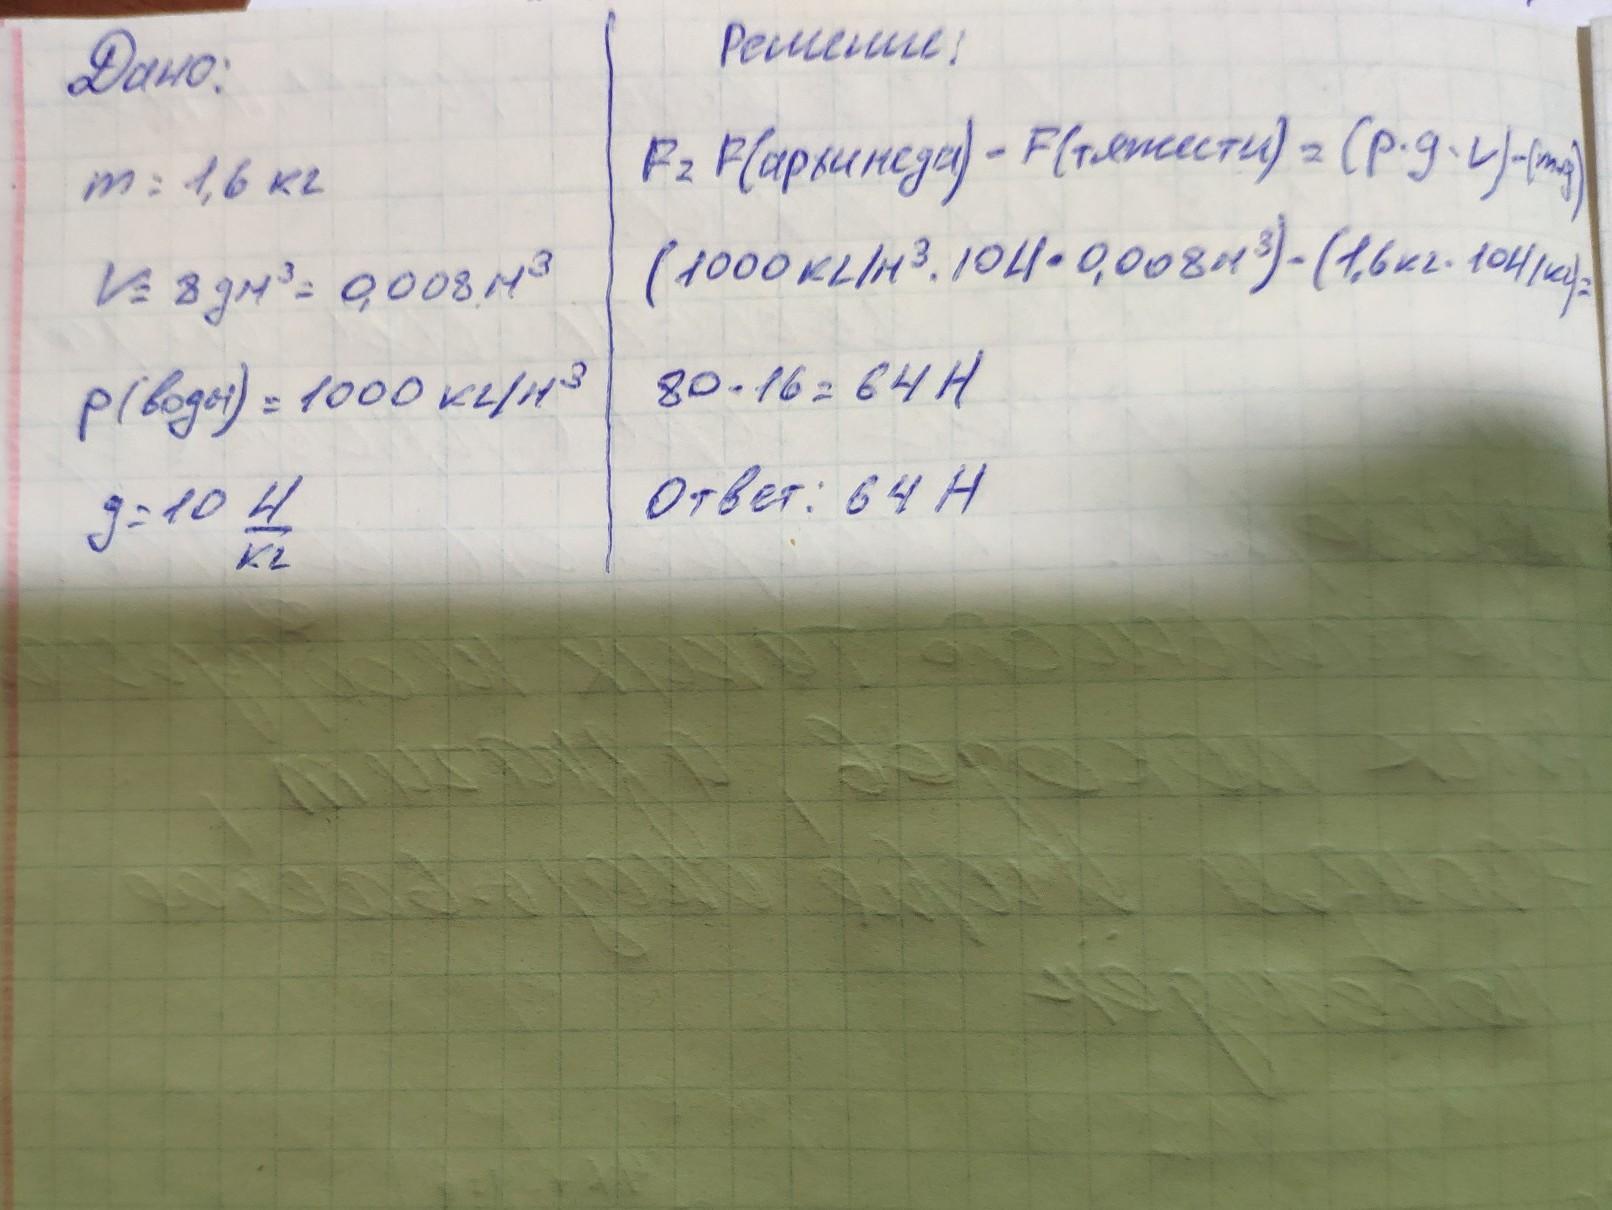 Дано:
m = 1,6 кг
V = 8 дм³ = 0,008 м³
p(воды) = 1000 кг/м³
g = 10 Н/кг
Решение:
F = F(архимеда) - F(тяжести) = (p·g·V)-(m·g)
(1000 кг/м³ · 10Н · 0,008м³) - (1,6кг · 10Н/кг) =
80 - 16 = 64 Н
Ответ: 64 Н